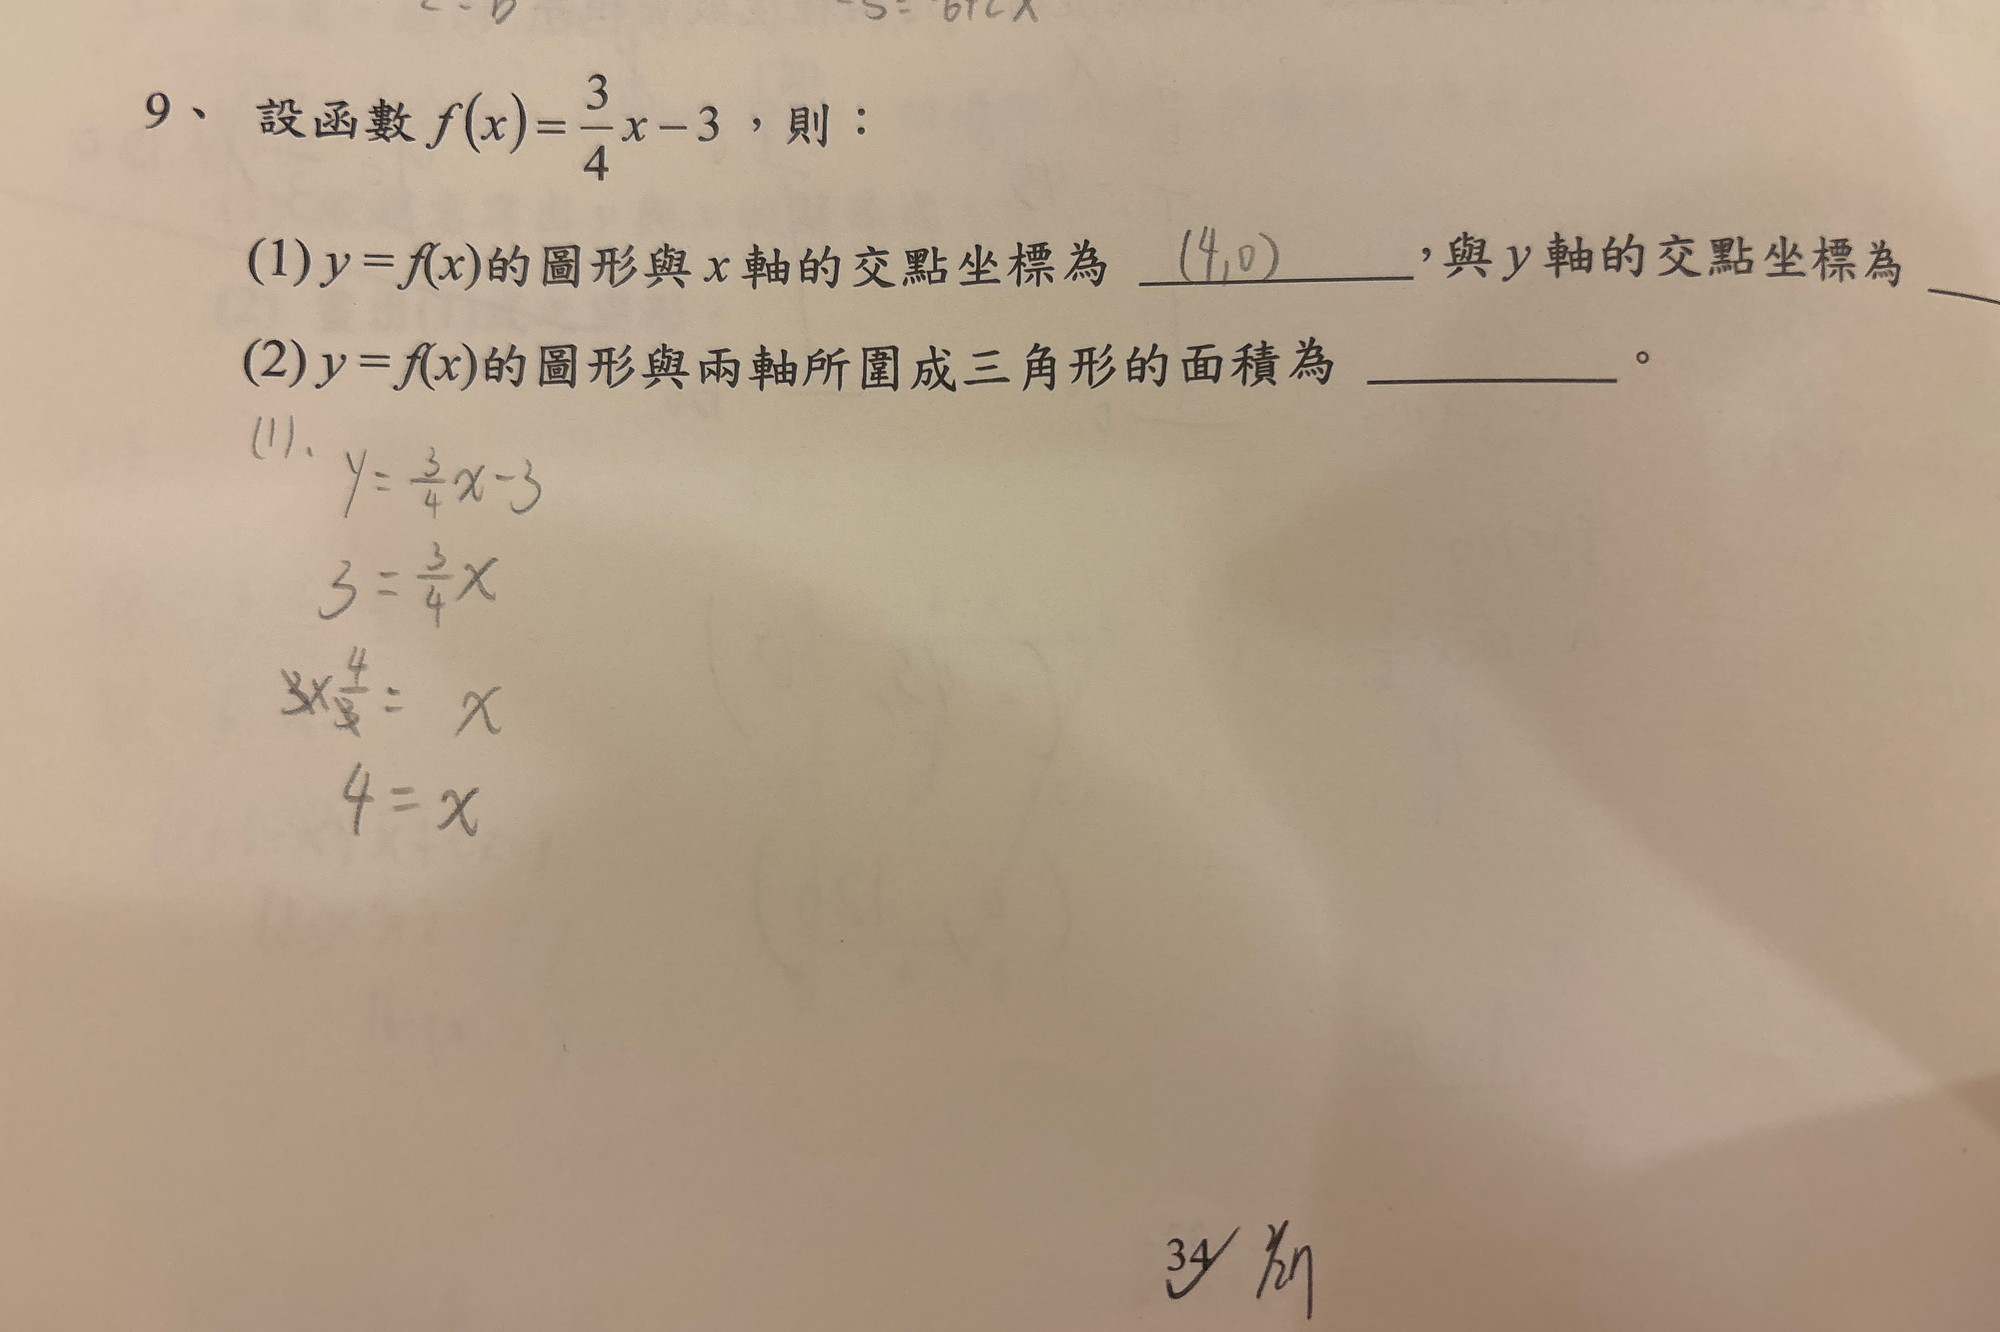 2=b -5=-6+2x
9、 設函數 f(x)=3/4x-3，則：
(1) y=f(x)的圖形與x軸的交點坐標為 (4,0) ，與y軸的交點坐標為
(2) y=f(x)的圖形與兩軸所圍成三角形的面積為 。
(1)、
y=3/4x-3
3=3/4x
3×4/3= x
4=x
34